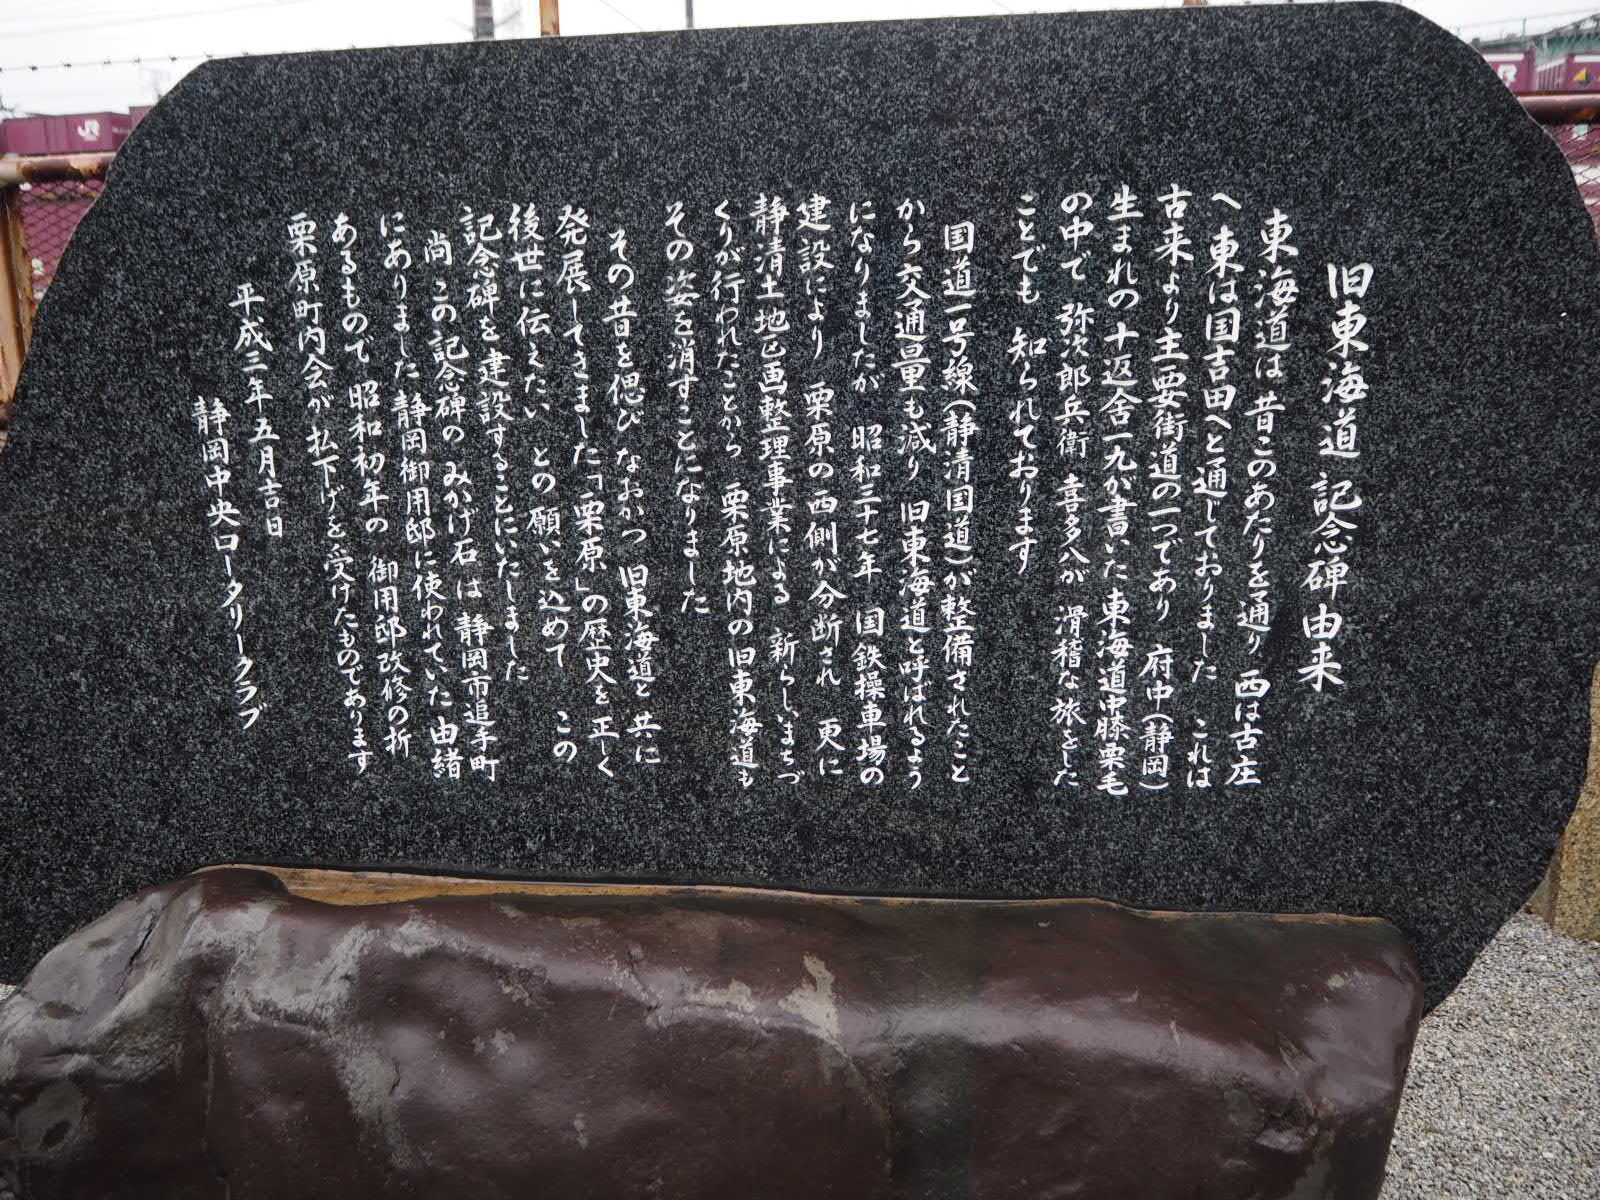 旧東海道 記念碑 由来
東海道は昔このあたりを通り 西は古庄
へ 東は国吉田へと通じておりました これは
古来より主要街道の一つであり 府中(静岡)
生まれの 十返舎一九が書いた 東海道中膝栗毛
の中で 弥次郎兵衛 喜多八が 滑稽な旅をした
ことでも 知られております
国道一号線(静清国道)が整備されたこと
から 交通量も減り 旧東海道と呼ばれるよう
になりましたが 昭和三十七年 国鉄操車場の
建設により 栗原の西側が分断され 更に
静清土地区画整理事業による 新らしいまちづ
くりが行われたことから 栗原地内の旧東海道も
その姿を消すことになりました
その昔を偲び なおかつ 旧東海道と 共に
発展してきました「栗原」の歴史を 正しく
後世に伝えたい との願いを込めて この
記念碑を建設することにいたしました
尚 この記念碑の みかげ石は 静岡市追手町
にありました 静岡御用邸に使われていた 由緒
あるもので 昭和初年の 御用邸改修の折
栗原町内会が払下げを受けたものであります
平成三年五月吉日
静岡中央ロータリークラブ
JR
JR